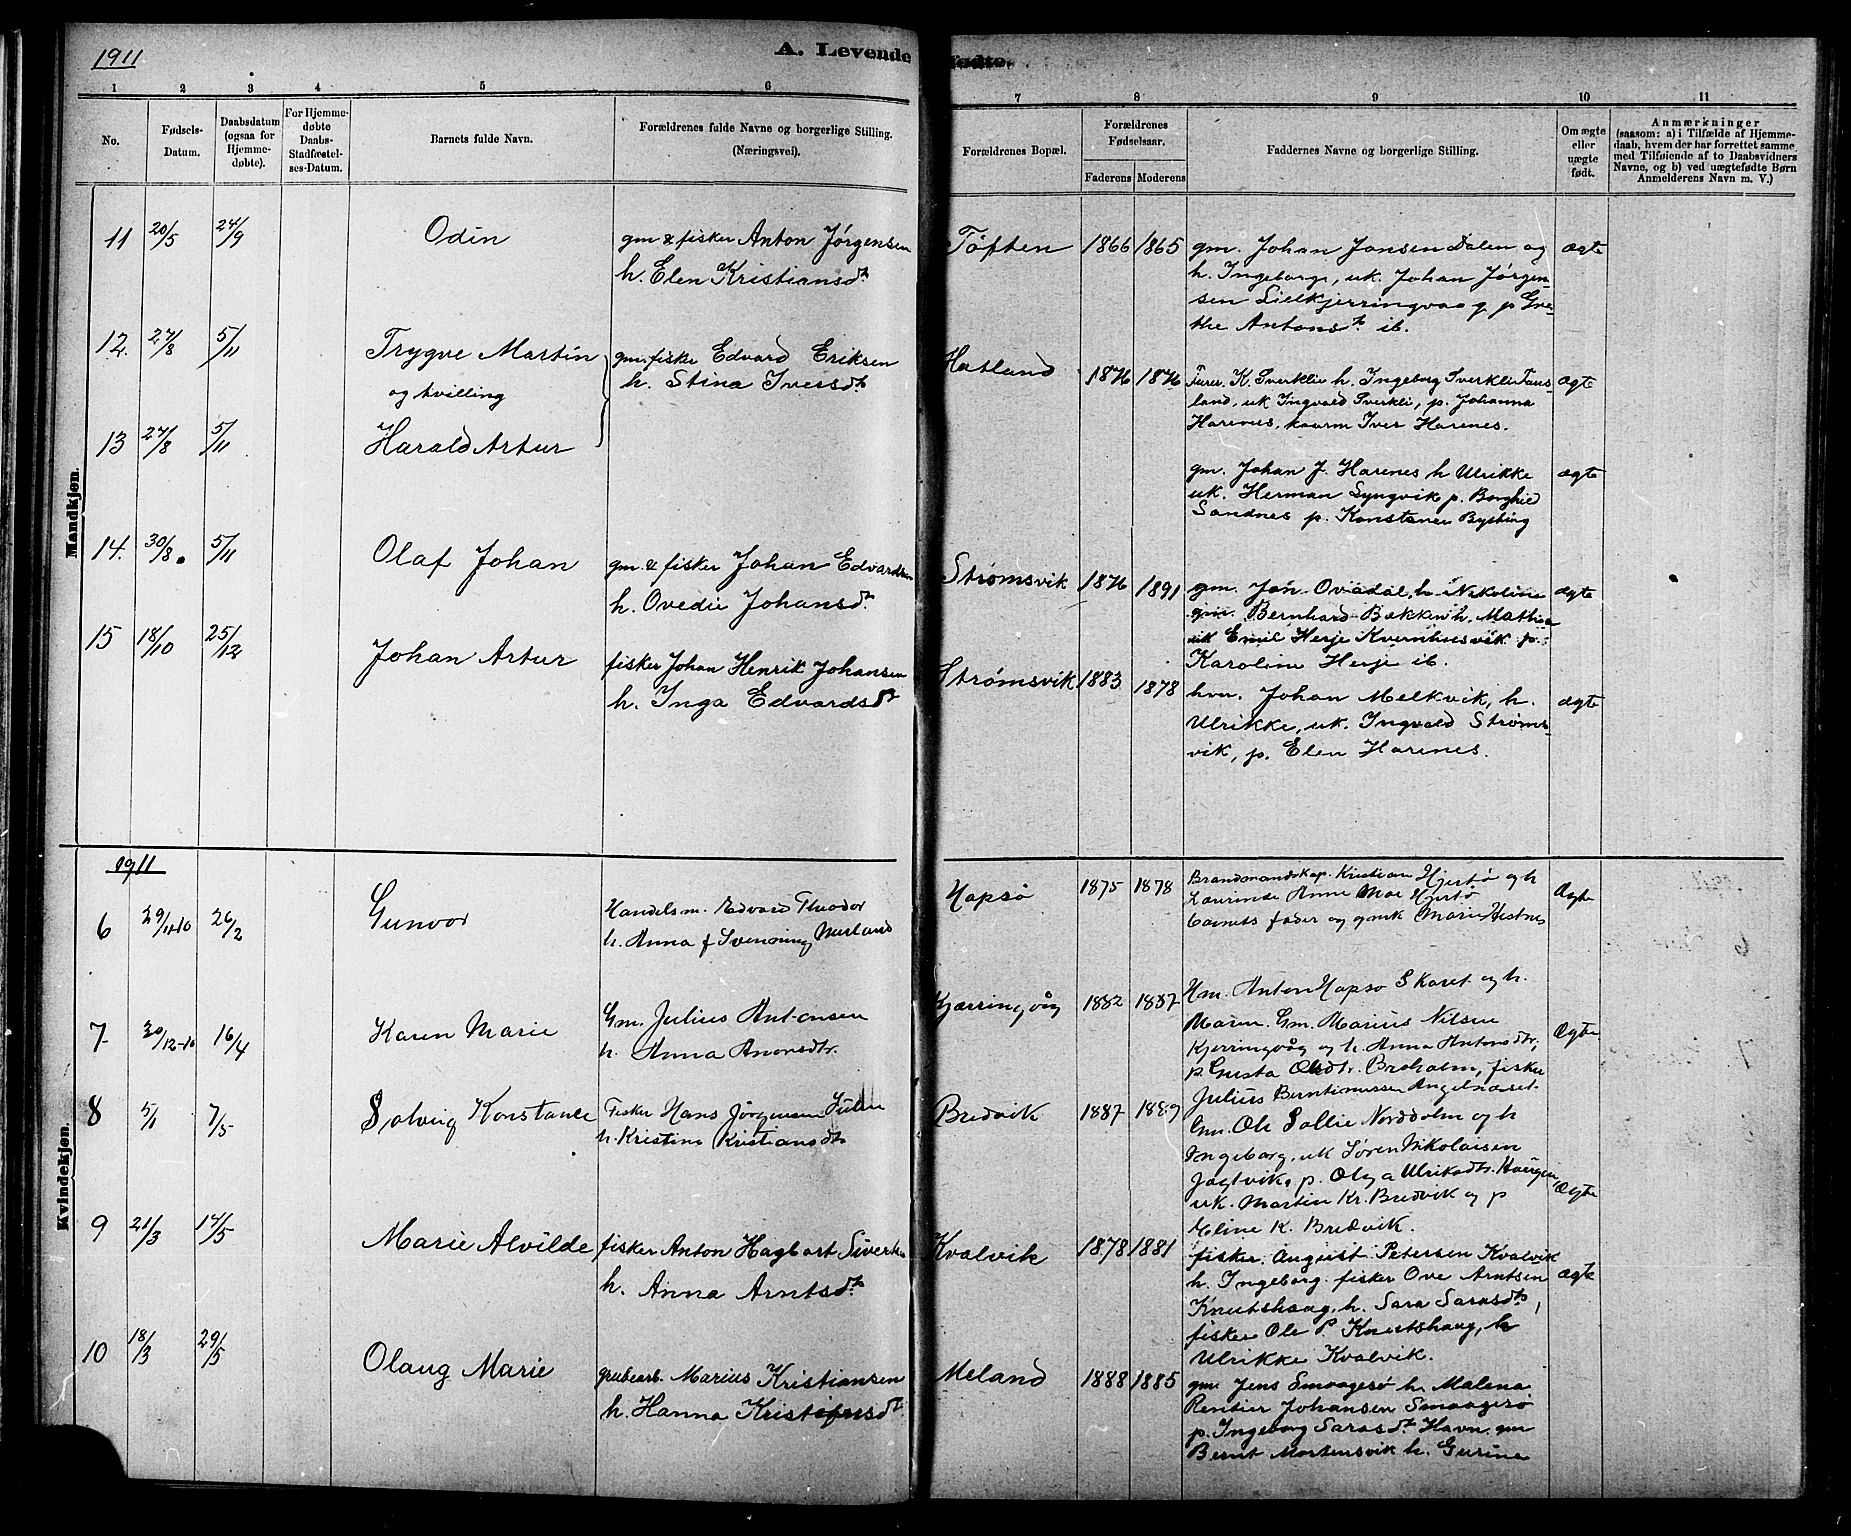 1911
A. Levende
fødte.
1 2 3 4 5 6 7 8 9 10 11
No.
Fødsels-
Datum.
Daabsdatum
(ogsaa for
Hjemme-
døbte).
For Hjemme-
døbte
Daabs-
Stadfæstel-
ses-Datum.
Barnets fulde Navn.
Forældrenes fulde Navne og borgerlige Stilling.
(Næringsvei).
Forældrenes Bopæl.
Forældrenes
Fødselsaar.
Faderens Moderens
Faddernes Navne og borgerlige Stilling.
Om ægte
eller
uægte
født.
Anmærkninger
(saasom: a) i Tilfælde af Hjemme-
daab, hvem der har forrettet samme
med Tilføiende af to Daabsvidners
Navne, og b) ved uægtefødte Børn
Anmelderens Navn m. V.)
Mandkjøn.
11 20/5 24/9 Odin gm & fisker Anton Jørgensen Tøften 1866 1865 gm. Johan Jansen Dalen og ægte
h. Elen Kristiansdt h. Ingeborg, uk. Johan Jørgen-
sen Lillkjerringvaag p Gre-
the Antonsdt ib.
12. 27/8 5/11 Trygve Martin gm. fisker Edvard Eriksen Hatland 1876 1876 K. Sverkli h. Ingeborg Sverkli Faus- ægte
og tvilling h. Stina Iversdt land, uk Ingvald Sverkli, p. Johanna
Harenes, kaarm Iver Harenes.
13 27/8 5/11 Harald Artur
gm. Johan J. Harenes h Ulrikke ægte
uk. Herman Lyngvik p. Borghild
Sandnes p. Konstance
14. 30/8. 5/11 Olaf Johan gm. & fisker Johan Edvardsen Strømsvik 1876 1891 gm. Jon h. Nikoline ægte
h. Ovedie Johansdt gm. Bernhard Bakken h. Mathea
uk Emil Herje Kvernhusvik p.
Karoline Herje ib.
15 18/10 25/12 Johan Artur fisker Johan Henrik Johansen Strømsvik 1883 1878 hm. Johan Melkvik, h. ægte
h. Inga Edvardsdt Ulrikke, uk. Ingvald Strøms-
vik, p. Elen Harenes.
Kvindekjøn.
1911
6 29/11-10 26/2 Gunvor Handelsm. Edvard Theodor Hapsø 1875 1878 Kristian Hjertø og h Ægte
h. Anna f Svenning Laurinde Anne Moe Hjertø
barnets fader og gmk Marie Hestnes
7 30/12-10 16/4 Karen Marie Gm. Julius Antonsen Kjærringvåg 1882 1887 Hm. Anton Hapsø Skaret og h.
h. Anna Maren. Gm. Marius Nilsen Ægte
Kjerringvåg og h Anna Antonsdtr,
p. Gusta Olsdtr. Broholm, fisker
Julius Berntinussen
8 5/1 7/5 Solveig Konstance Fisker Hans Jörgensen Bredvik 1887 1889 Gm. Ole Sollie Norddolm og h
h. Kristine Kristiansdtr Ingeborg, uk Søren Nikolaisen
Jagtvik, p. Olga Ulriksdtr. Haugen Ægte
uk. Martin Kr. Bredvik og p
Eline K. Bredvik.
9 21/3 14/5 Marie Alvilde fisker Anton Hagbart Sivertsen Kvalvik 1878 1881 fisker August Petersen Kvalvik
h. Anna Arntsdt. h. Ingeborg. fisker Ove Arntsen ægte
Knutshaug, h. Sara Sarasdt,
fisker Ole P. Knutshaug, h
Ulrikke Kvalvik.
10 18/3 29/5 Olaug Marie grubearb. Marius Kristiansen Meland 1888 1885 gm Jens Smaagesø h. Malena
h. Hanna Kristofersdt Rentier Johansen Smaagesø
p. Ingeborg Sarasdt Havn. gm
Bernt Mortensvik h. Gurine